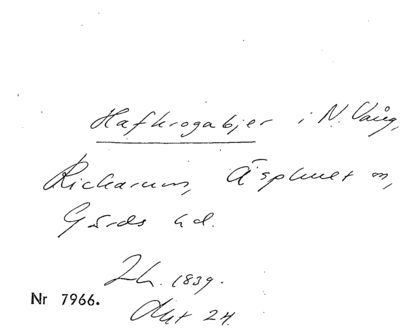 Hafkrogabjer i N. Vång,
Rickarum, Äsphult sn,
Gärds hd.
Lh. 1839.
Nr 7966.
Akt 24.